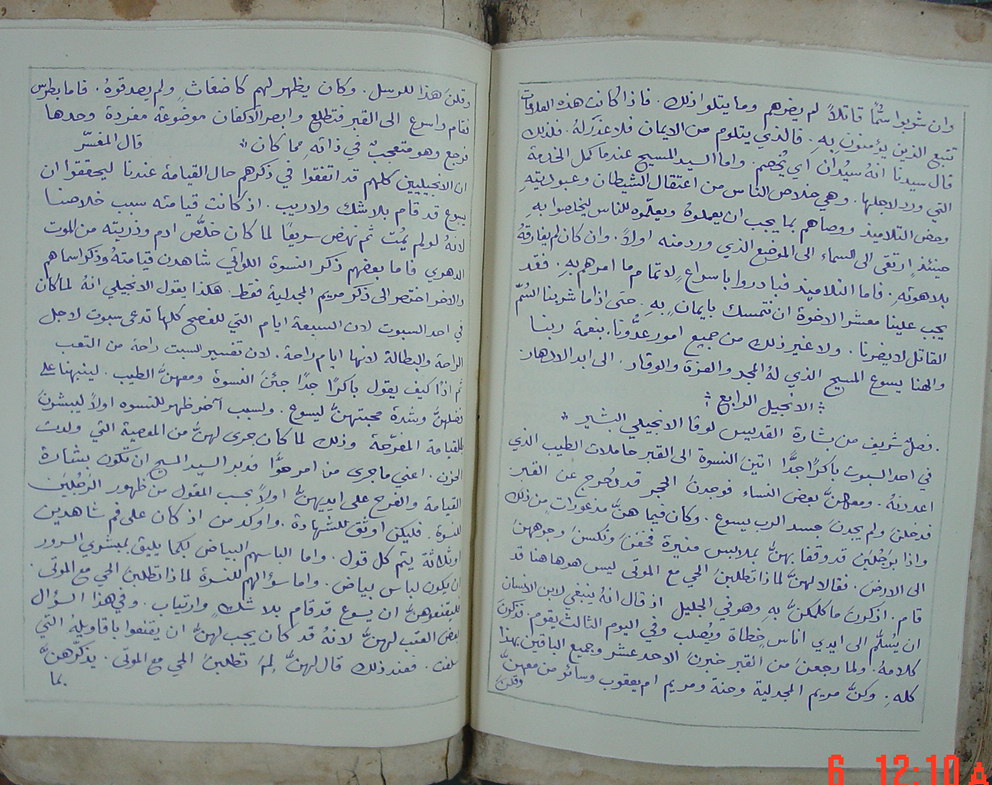 وان شربوا سمًّا قاتلاً لم يضرهم وما يتلوا ذلك . فاذا كانت هذه العلامات
تتبع الذين يؤمنون به . فالذي يتلوم من الايمان فلا عذر لهُ . فلذلك
قال سيدنا انهُ سيُدان اي يُخصم . واما السيد المسيح عندما كمل الخدمة
التي ورد لاجلها . وهي خلاص الناس من اعتقال الشيطان وعبوديتهِ
وحض التلاميذ ووصاهم بما يجب ان يعملوهُ ويعلّموه للناس ليخلصوا بهِ .
حينئذٍ ارتقى الى السماء الى الموضع الذي ورد منه اولاً . وان كان لم يفارقهُ
بلاهوتهِ . فاما التلاميذ فبادروا باسراعٍ لاتمام ما امرهم بهِ . فقد
يجب علينا معشر الاخوة ان نتمسك بايمانٍ بهِ . حتى اذا ما شربنا السُمّ
القاتل لا يضرنا . ولا غير ذلك من جميع امور عدوّنا . بنعمة ربنا
والهنا يسوع المسيح الذي لهُ المجد والعزة والوقار . الى ابد الادهار .
الانجيل الرابع
فصلٌ شريف من بشارة القديس لوقا الانجيلي البشير
في احد السبوت باكرًا جدًّا اتين النسوة الى القبر حاملات الطيب الذي
اعددنهُ . ومعهنَّ بعض النساء فوجدنَ الحجر قد دُحرج عن القبر .
فدخلنَ ولم يجدنَ جسد الرب يسوع . وكان فيما هنَّ مذعورات من ذلك
واذا برجُلين قد وقفا بهنَّ بملابس منيرة فخفنَ ونكسنَ وجوههنَّ
الى الارض . فقالا لهنَّ لماذا تطلبنَ الحي مع الموتى ليس هو هاهنا قد
قام . اذكرنَ ما كلمكنَّ بهِ وهو في الجليل اذ قال انهُ ينبغي لابن الانسان
ان يُسلَّم الى ايدي اناسٍ خطاة ويُصلب وفي اليوم الثالث يقوم . فذكرنَ
كلامهُ ولما رجعنَ من القبر خبرنَ الاحد عشر وجميع الباقين بهذا
كلهِ . وكنَّ مريم المجدلية وحنة ومريم ام يعقوب وسائر من معهنَّ
وقلنَ
وقلنَ هذا للرسل . وكان يظهر لهم كاضغاثٍ ولم يصدقوهُ . فاما بطرس
فقام واسرع الى القبر فتطلع وابصر الاكفان موضوعة مفردة وحدها
فرجع وهو متعجب في ذاته مما كان قال المفسّر
ان الانجيليين كلهم قد اتفقوا في ذكرهم حال القيامة عندنا ليحققوا ان
يسوع قد قام بلا شك ولا ريب . اذ كانت قيامته سبب خلاصنا
لانهُ لو لم يمُت ثم نهض سريعًا لما كان خلَّص ادم وذريته من الموت
الدهري فاما بعضهم ذكر النسوة اللواتي شاهدن قيامتهُ وذكر اسماهم
والاخر اختصر الى ذكر مريم المجدلية فقط . هكذا يقول الانجيلي انهُ لما كان
في احد السبوت لان السبعة ايام التي للفصح كلها تدعى سبوت لاجل
الراحة والبطالة لانها ايام راحة . لان تفسير السبت راحة من التعب
ثم اذًا كيف يقول باكرًا جدًا جئنَ النسوة ومعهنَّ الطيب . لينبهنا على
فضلهنَّ وشدة محبتهنَّ ليسوع . ولسبب آخر ظهر للنسوه اولاً ليبشرنَ
بالقيامة المفرّحة وذلك لما كان جرى لهنَّ من المعصية التي ولدت
الحزن . اعني ما جرى من امر حوَّا فدبر السيد المسيح ان تكون بشارة
القيامة والفرح على ايديهنَّ اولاً بحسب المقول من ظهور الرجلين
للنسوة . فليكن اوثق للشهادة . واوكد من اذ كان على فم شاهدين
او ثلاثة يتم كل قول . واما الباسهم البياض لكما يليق بمبشري السرور
ان يكون لباس بياض . واما سؤالهم للنسوة لماذا تطلبنَ الحي مع الموتى .
ليقنعوهنَّ ان يسوع قد قام بلا شك وارتياب . وفي هذا السؤال
بعض العتب لهنَّ لانهُ قد كان يجب لهنَّ ان يقنعوا باقاويلهُ التي
سلفت . فعند ذلك قال لهنَّ لِمَ تطلبنَ الحي مع الموتى . يذكّرهنَّ
بما
6 12:10 A